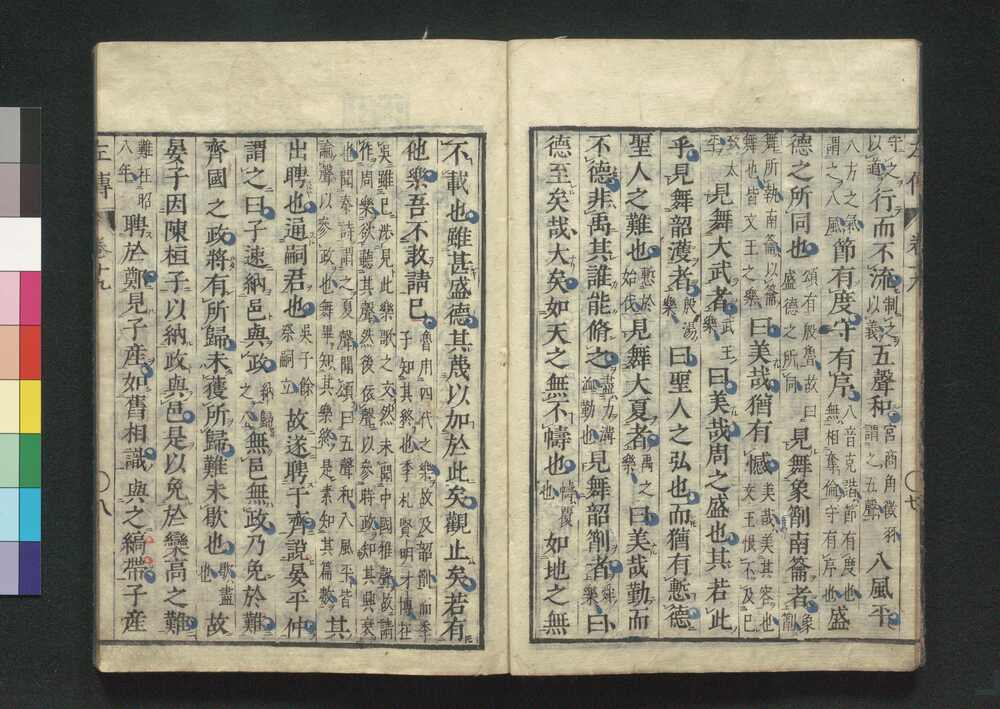 左傳 卷十九 ○七
守之以道行而不流制之以義五聲和宮商角徵羽謂之五聲八風平
八方之氣謂之八風節有度守有序八音克諧節有度也無相奪倫守有序也盛
德之所同也頌有殷魯故曰盛德之所同見舞象箾南籥者象箾
舞所執南籥以籥舞也皆文王之樂曰美哉猶有憾美哉美其容也文王恨不及已
致太平見舞大武者武王樂曰美哉周之盛也其若此
乎見舞韶濩者殷湯樂曰聖人之弘也而猶有慙德
聖人之難也慙於始伐見舞大夏者禹之樂曰美哉勤而
不德非禹其誰能脩之盡力溝洫勤也見舞韶箾者舜樂曰
德至矣哉大矣如天之無不幬也幬覆也如地之無
不載也雖甚盛德其蔑以加於此矣觀止矣若有
他樂吾不敢請已魯用四代之樂故及韶箾而季子知其終也季札賢明才博在
吳雖已涉見此樂歌之文然未聞中國雅聲故請作周樂欲聽其聲然後依聲以參時政知其興衰
也聞秦詩謂之夏聲聞頌曰五聲和八風平皆論聲以參政也舞畢知其樂終是素知其篇數其
出聘也通嗣君也吳子餘祭嗣立故遂聘于齊說晏平仲
謂之曰子速納邑與政納歸之公無邑無政乃免於難
齊國之政將有所歸未獲所歸難未歇也歇盡也故
晏子因陳桓子以納政與邑是以免於欒高之難
難在昭八年聘於鄭見子產如舊相識與之縞帶子產
左傳 卷十九 ○八